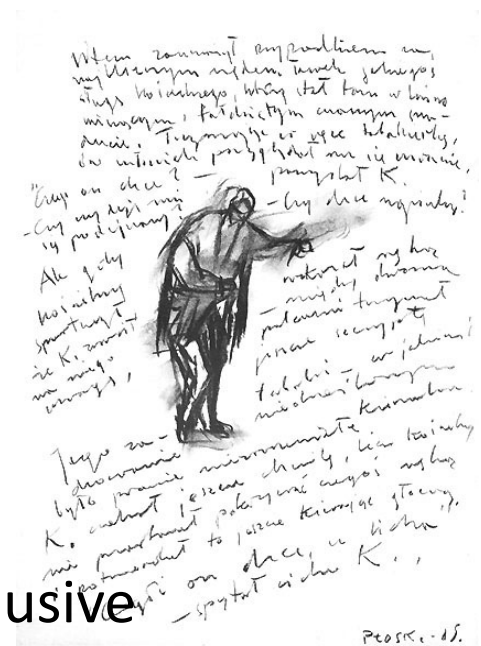 Wtem zauważył przypadkiem za
najbliższym rzędem ławek jakiegoś
sługę kościelnego, który stał tam w luźno
wiszącym, fałdzistym czarnym sur-
ducie. Trzymając w ręce tabakierkę,
ów człowiek przyglądał mu się uważnie.
"Czego on chce? - pomyślał K.
- Czy wydaję mu
się podejrzany?
- Czy chce napiwku?
Ale gdy
kościelny
spostrzegł
że K. zwrócił
na niego
uwagę,
wskazał ręką
- między dwoma
palcami trzymał
jeszcze szczyptę
tabaki - w jakimś
nieokreślonym
kierunku.
Jego za-
chowanie
było prawie niezrozumiałe.
K. czekał jeszcze chwilę, lecz kościelny
nie przestawał pokazywać czegoś ręką
i potwierdzał to jeszcze kiwając głową.
on chce, 
- spytał cicho K.
usive